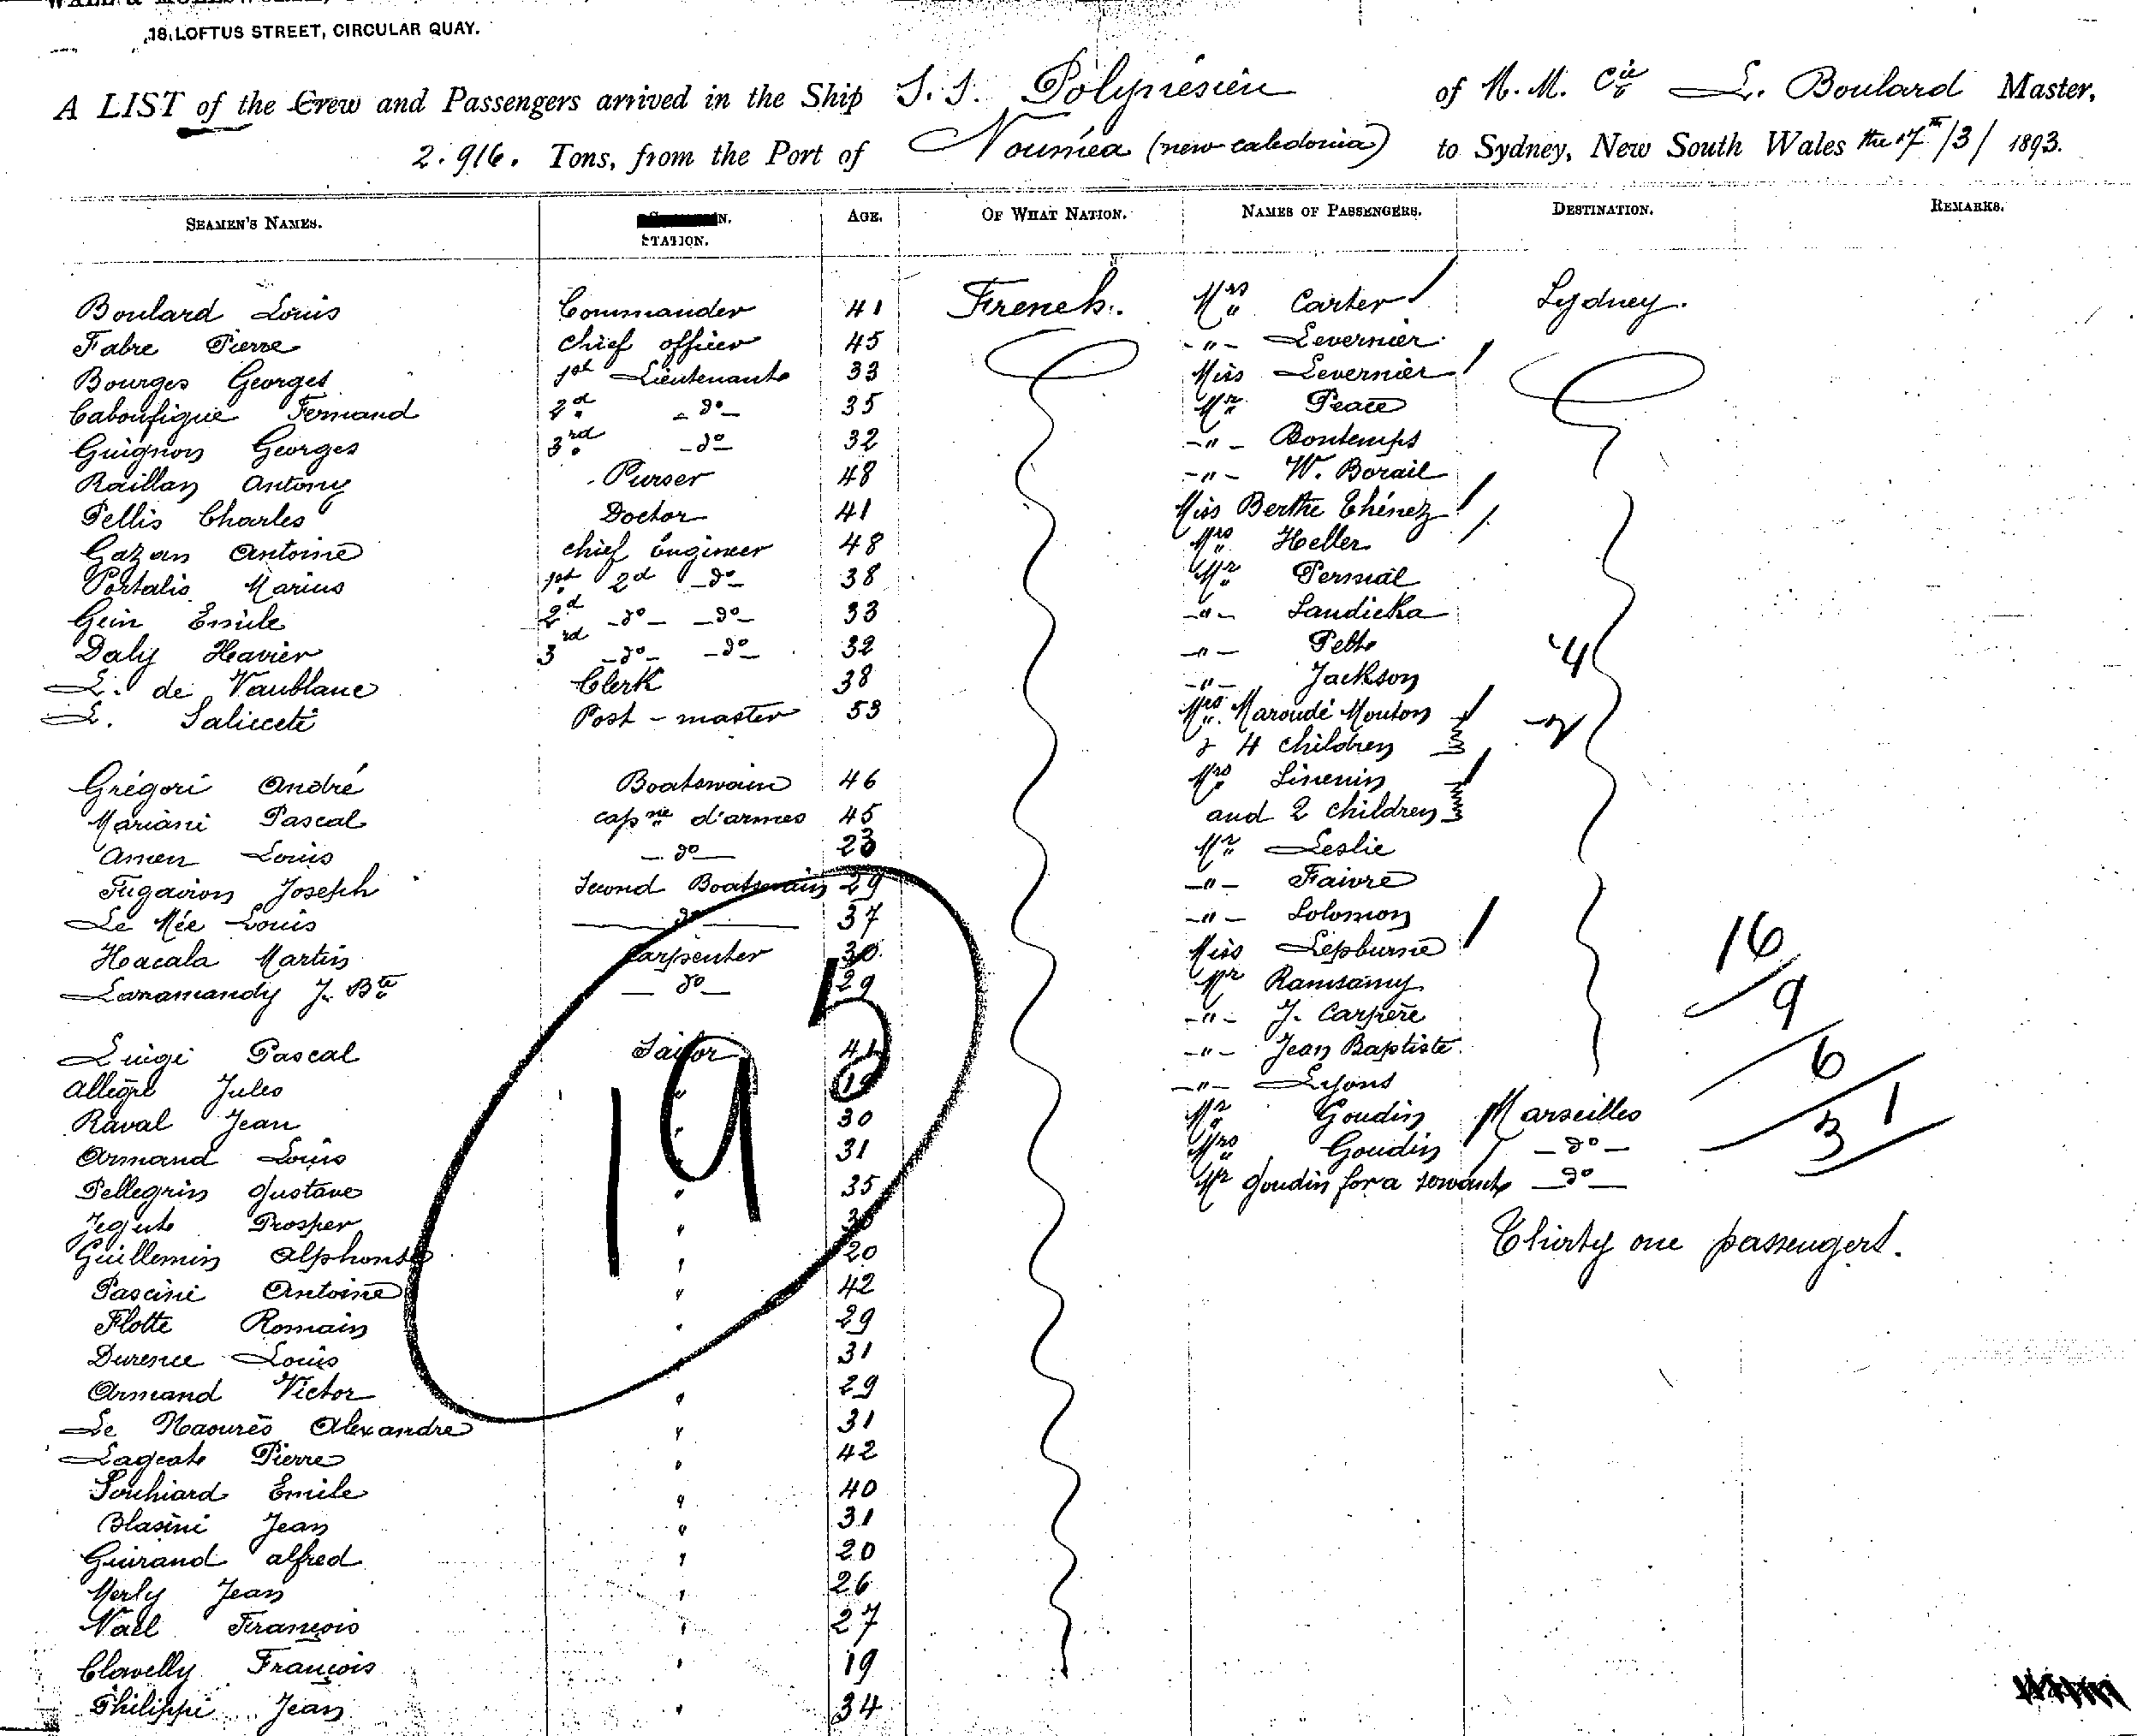 18, LOFTUS STREET, CIRCULAR QUAY.
A LIST of the Crew and Passengers arrived in the Ship S. S. Polynésien of M. M. Cie L. Boulard Master,
2.916. Tons, from the Port of Nouméa (new caledonia) to Sydney, New South Wales the 17th/3/1893.
SEAMEN'S NAMES. STATION. AGE. OF WHAT NATION. NAMES OF PASSENGERS. DESTINATION. REMARKS.
Boulard Louis Commander 41 French. Mrs Carter Sydney.
Fabre Pierre chief officer 45 -"- Levernier
Bourges Georges 1st Lieutenant 33 Miss Levernier
Caboufigue Fernand 2d -do- 35 Mr Peace
Guignon Georges 3rd -do- 32 -"- Bontemps
Raillan Antony Purser 48 -"- W. Borail
Pellis Charles Doctor 41 Miss Berthe Thénez
Gazan Antoine chief Engineer 48 Mrs Heller
Portalis Marius 1st 2d -do- 38 Mr Permal
Gein Emile 2d -do- -do- 33 -"- Sandicka
Daly Havier 3rd -do- -do- 32 -"- Pelt
L. de Vaublanc Clerk 38 -"- Jackson
L. Salicceti Post-master 53 Mrs Maroudé Mouton
& 4 children
Grégori André Boatswain 46 Mrs Sinenin
Mariani Pascal capne d'armes 45 and 2 children
Amen Louis -do- 23 Mr Leslie
Fugairon Joseph Second Boatswain 29 -"- Faivre
Le Mée Louis do 37 -"- Solomon
Hacala Martin Carpenter 30 Miss Lepburne
Larramandy J. Bte -do- 29 Mr Ramsamy
-"- J. Carpère
Luigi Pascal Sailor 41 -"- Jean Baptiste
Allègre Jules " 19 -"- Lyons
Raval Jean " 30 Mr Goudin Marseilles
Armand Louis " 31 Mrs Goudin -do-
Pellegrin Gustave " 35 Mr Goudin for a servant -do-
Jegut Prosper "
Guillemin Alphonse " 20 Thirty one passengers.
Pascini Antoine " 42
Flotte Romain " 29
Durence Louis " 31
Armand Victor " 29
Le Naourès Alexandre " 31
Lageat Pierre " 42
Souhiard Emile " 40
Blasini Jean " 31
Guirand alfred " 20
Merly Jean " 26
Naël François " 27
Clavelly François " 19
Philippi Jean " 34
4
16
9
6
3 1
195